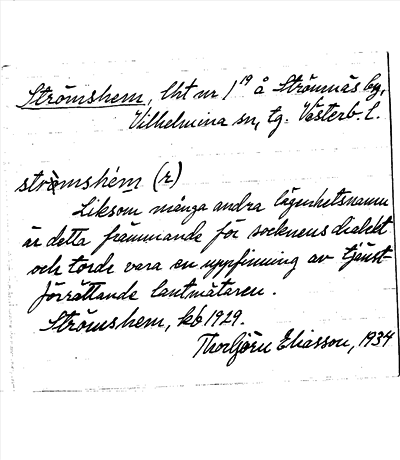 Strömshem, lht nr 1¹⁹ å Strömnäs by,
Vilhelmina sn, tg. Västerb. l.
strömshém (r)
Liksom många andra lägenhetsnamn
är detta främmande för socknens dialekt
och torde vara en uppfinning av tjänst-
förrättande lantmätaren.
Strömshem, kb 1929.
Thorbjörn Eliasson, 1934